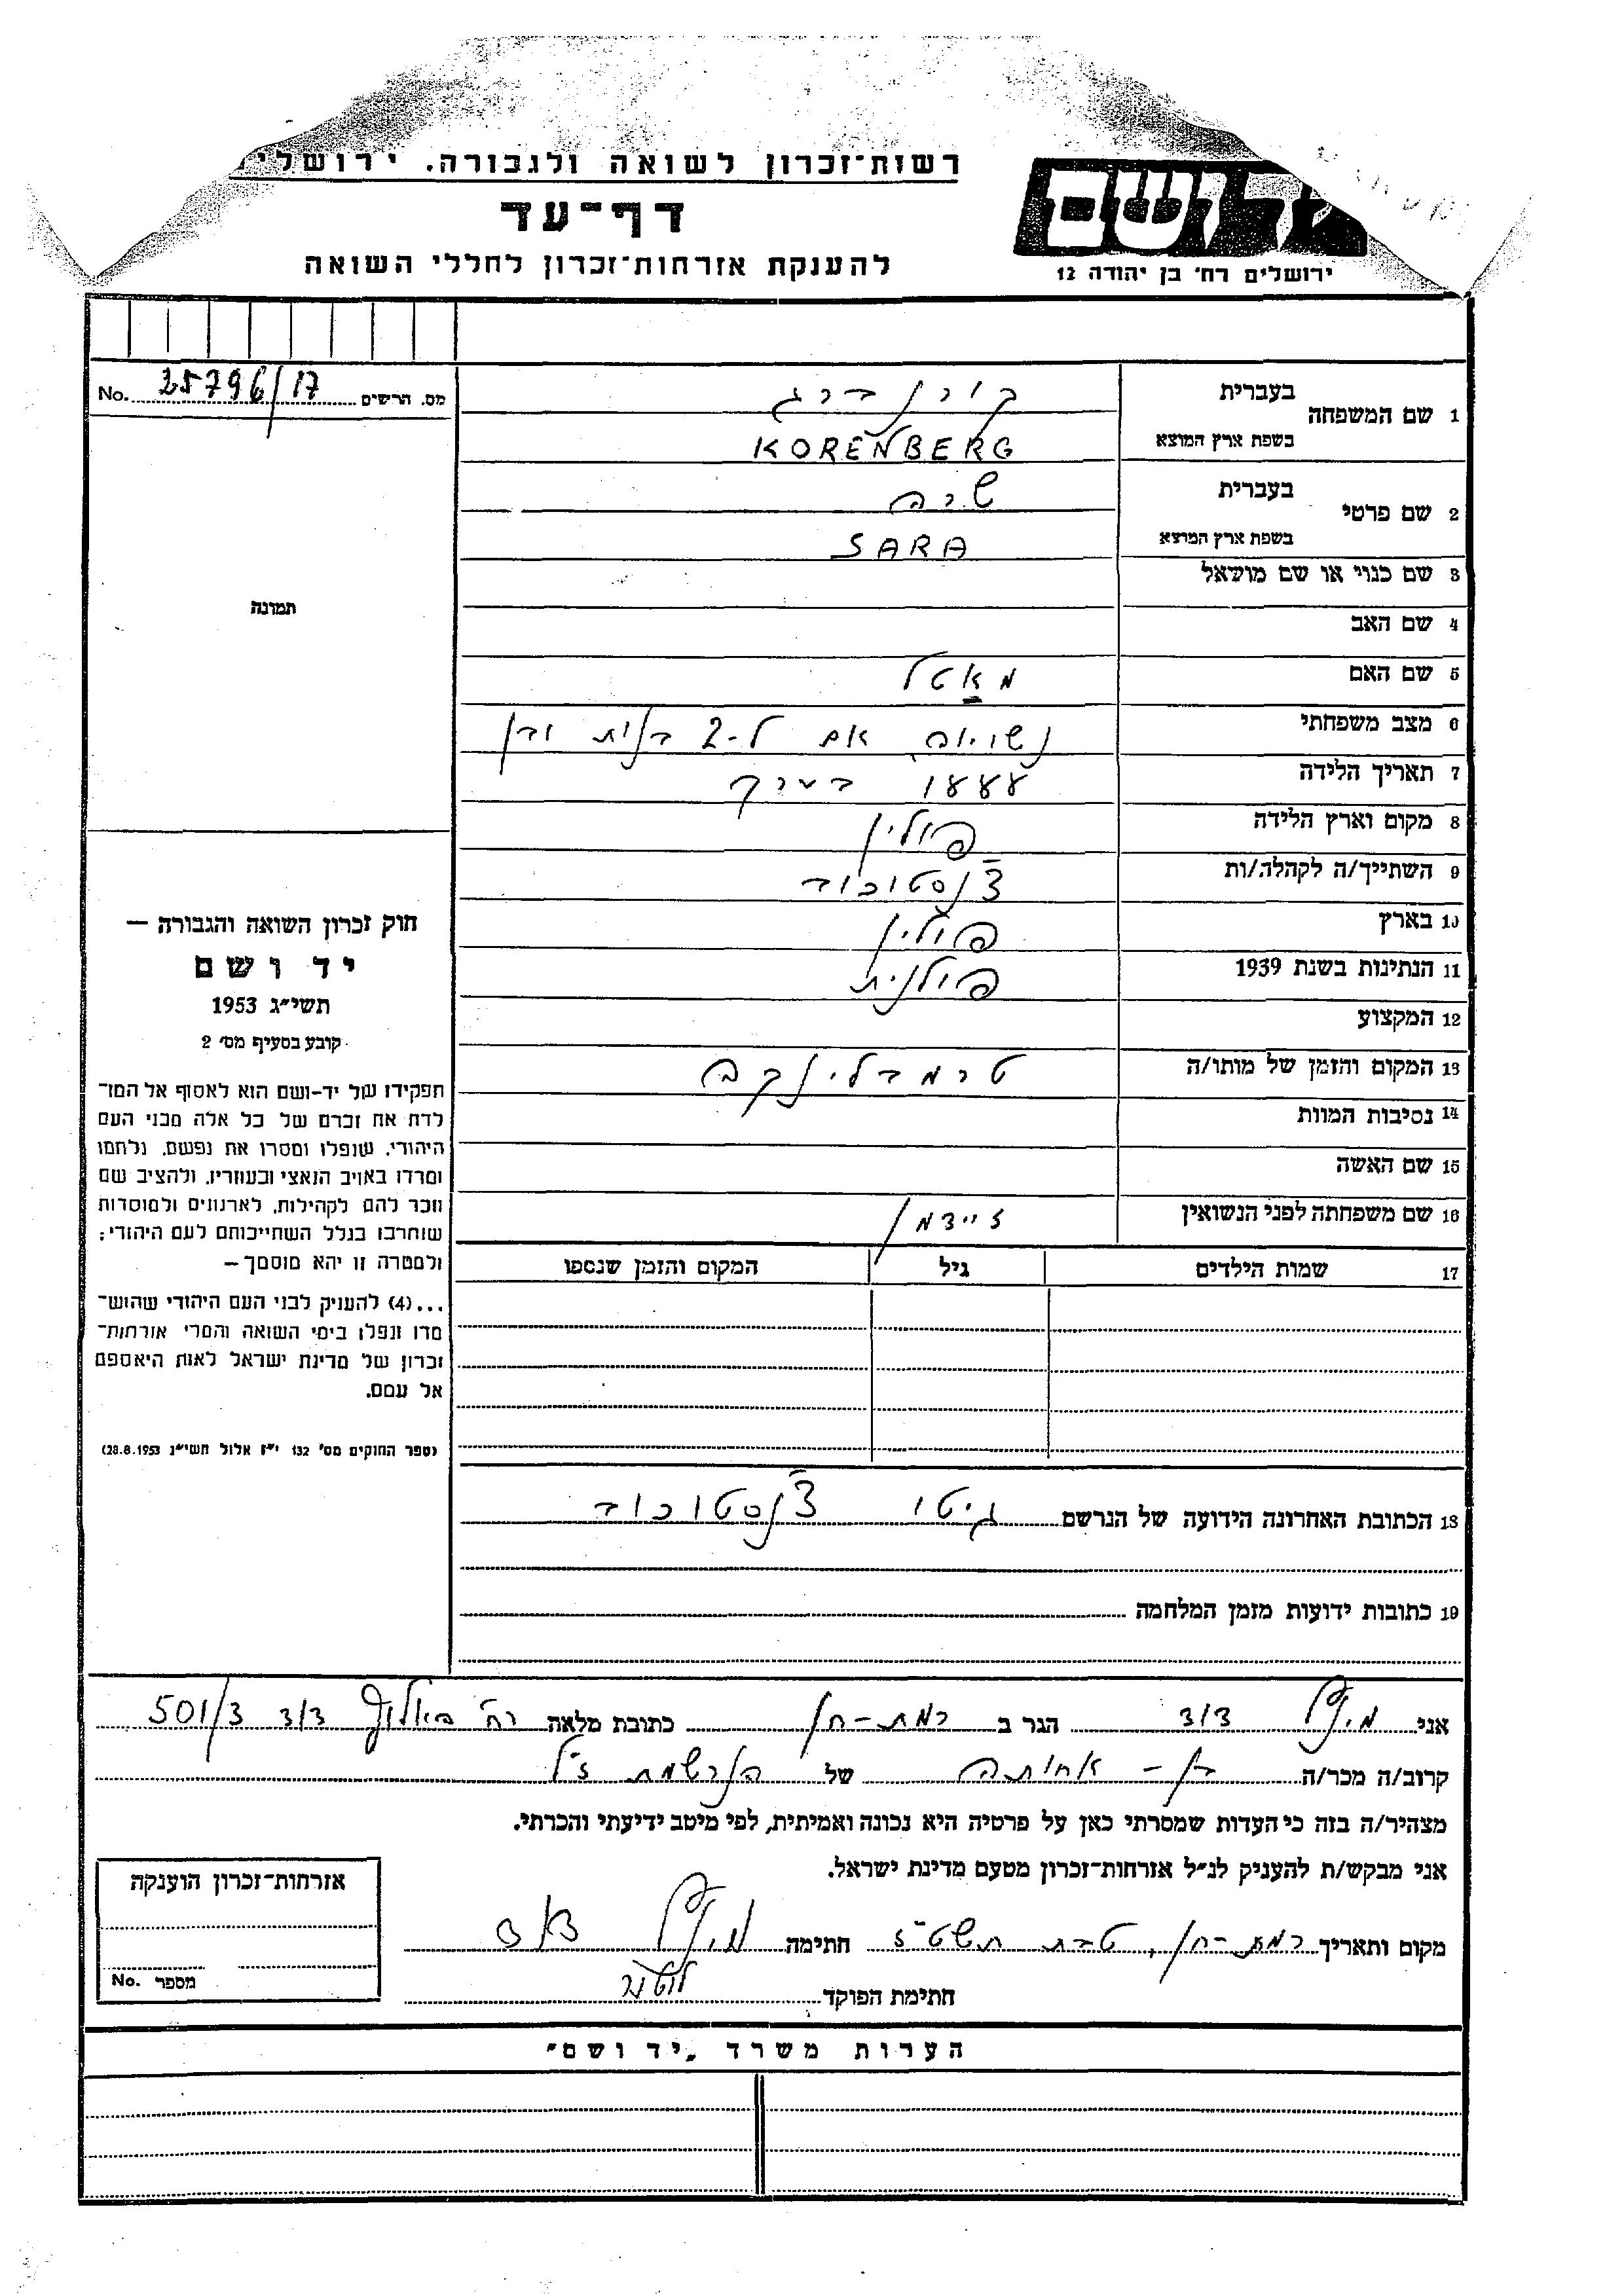 רשות־זכרון לשואה ולגבורה. ירושלי
דף־עד
להענקת אזרחות־זכרון לחללי השואה
ירושלים רח׳ בן יהודה 12
No. 25796/17 מס. הרשים
תמונה
1 שם המשפחה בעברית קורנברג
בשפת ארץ המוצא KORENBERG
2 שם פרטי בעברית שרה
בשפת ארץ המוצא SARA
3 שם כנוי או שם מושאל
4 שם האב
5 שם האם מאטל
6 מצב משפחתי נשואה, אם ל-2 בנות ובן
7 תאריך הלידה 1888 בערך
8 מקום וארץ הלידה פולין
9 השתייך/ה לקהלה/ות צ'נסטוכוב
10 בארץ פולין
11 הנתינות בשנת 1939 פולנית
12 המקצוע
13 המקום והזמן של מותו/ה טרמבלינקה
14 נסיבות המוות
15 שם האשה
16 שם משפחתה לפני הנשואין זיידמן
17 שמות הילדים גיל המקום והזמן שנספו
18 הכתובת האחרונה הידועה של הנרשם גיטו צ'נסטוכוב
19 כתובות ידועות מזמן המלחמה
חוק זכרון השואה והגבורה –
יד ושם
תשי״ג 1953
קובע בסעיף מס׳ 2
תפקידו של יד-ושם הוא לאסוף אל המו־
לדת את זכרם של כל אלה מבני העם
היהודי, שנפלו ומסרו את נפשם, נלחמו
ומרדו באויב הנאצי ובעוזריו, ולהציב שם
וזכר להם לקהילות, לארגונים ולמוסדות
שוחרבו בגלל השתייכותם לעם היהודי;
ולמטרה זו יהא מוסמך –
...(4) להעניק לבני העם היהודי שהוש־
מדו ונפלו בימי השואה והמרי אזרחות־
זכרון של מדינת ישראל לאות היאספם
אל עמם.
(ספר החוקים מס׳ 132 י״ז אלול תשי״ג 28.8.1953)
אני הגר ב רמת-חן כתובת מלאה רח' 501/3
קרוב/ה מכר/ה בן-אחותה של הנרשמת ז"ל
מצהיר/ה בזה כי העדות שמסרתי כאן על פרטיה היא נכונה ואמיתית, לפי מיטב ידיעתי והכרתי.
אני מבקש/ת להעניק לנ״ל אזרחות־זכרון מטעם מדינת ישראל.
מקום ותאריך רמת-חן, טבת תשט"ז חתימה
חתימת הפוקד
אזרחות־זכרון הוענקה
מספר No.
הערות משרד „יד ושם״